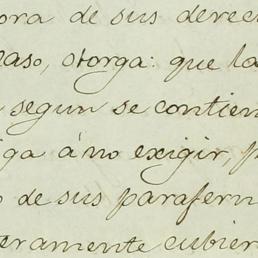 ora de sus derec
caso, otorga: que la
segun se contien
iga á no exigir, p
de sus parafern
eramente cubier